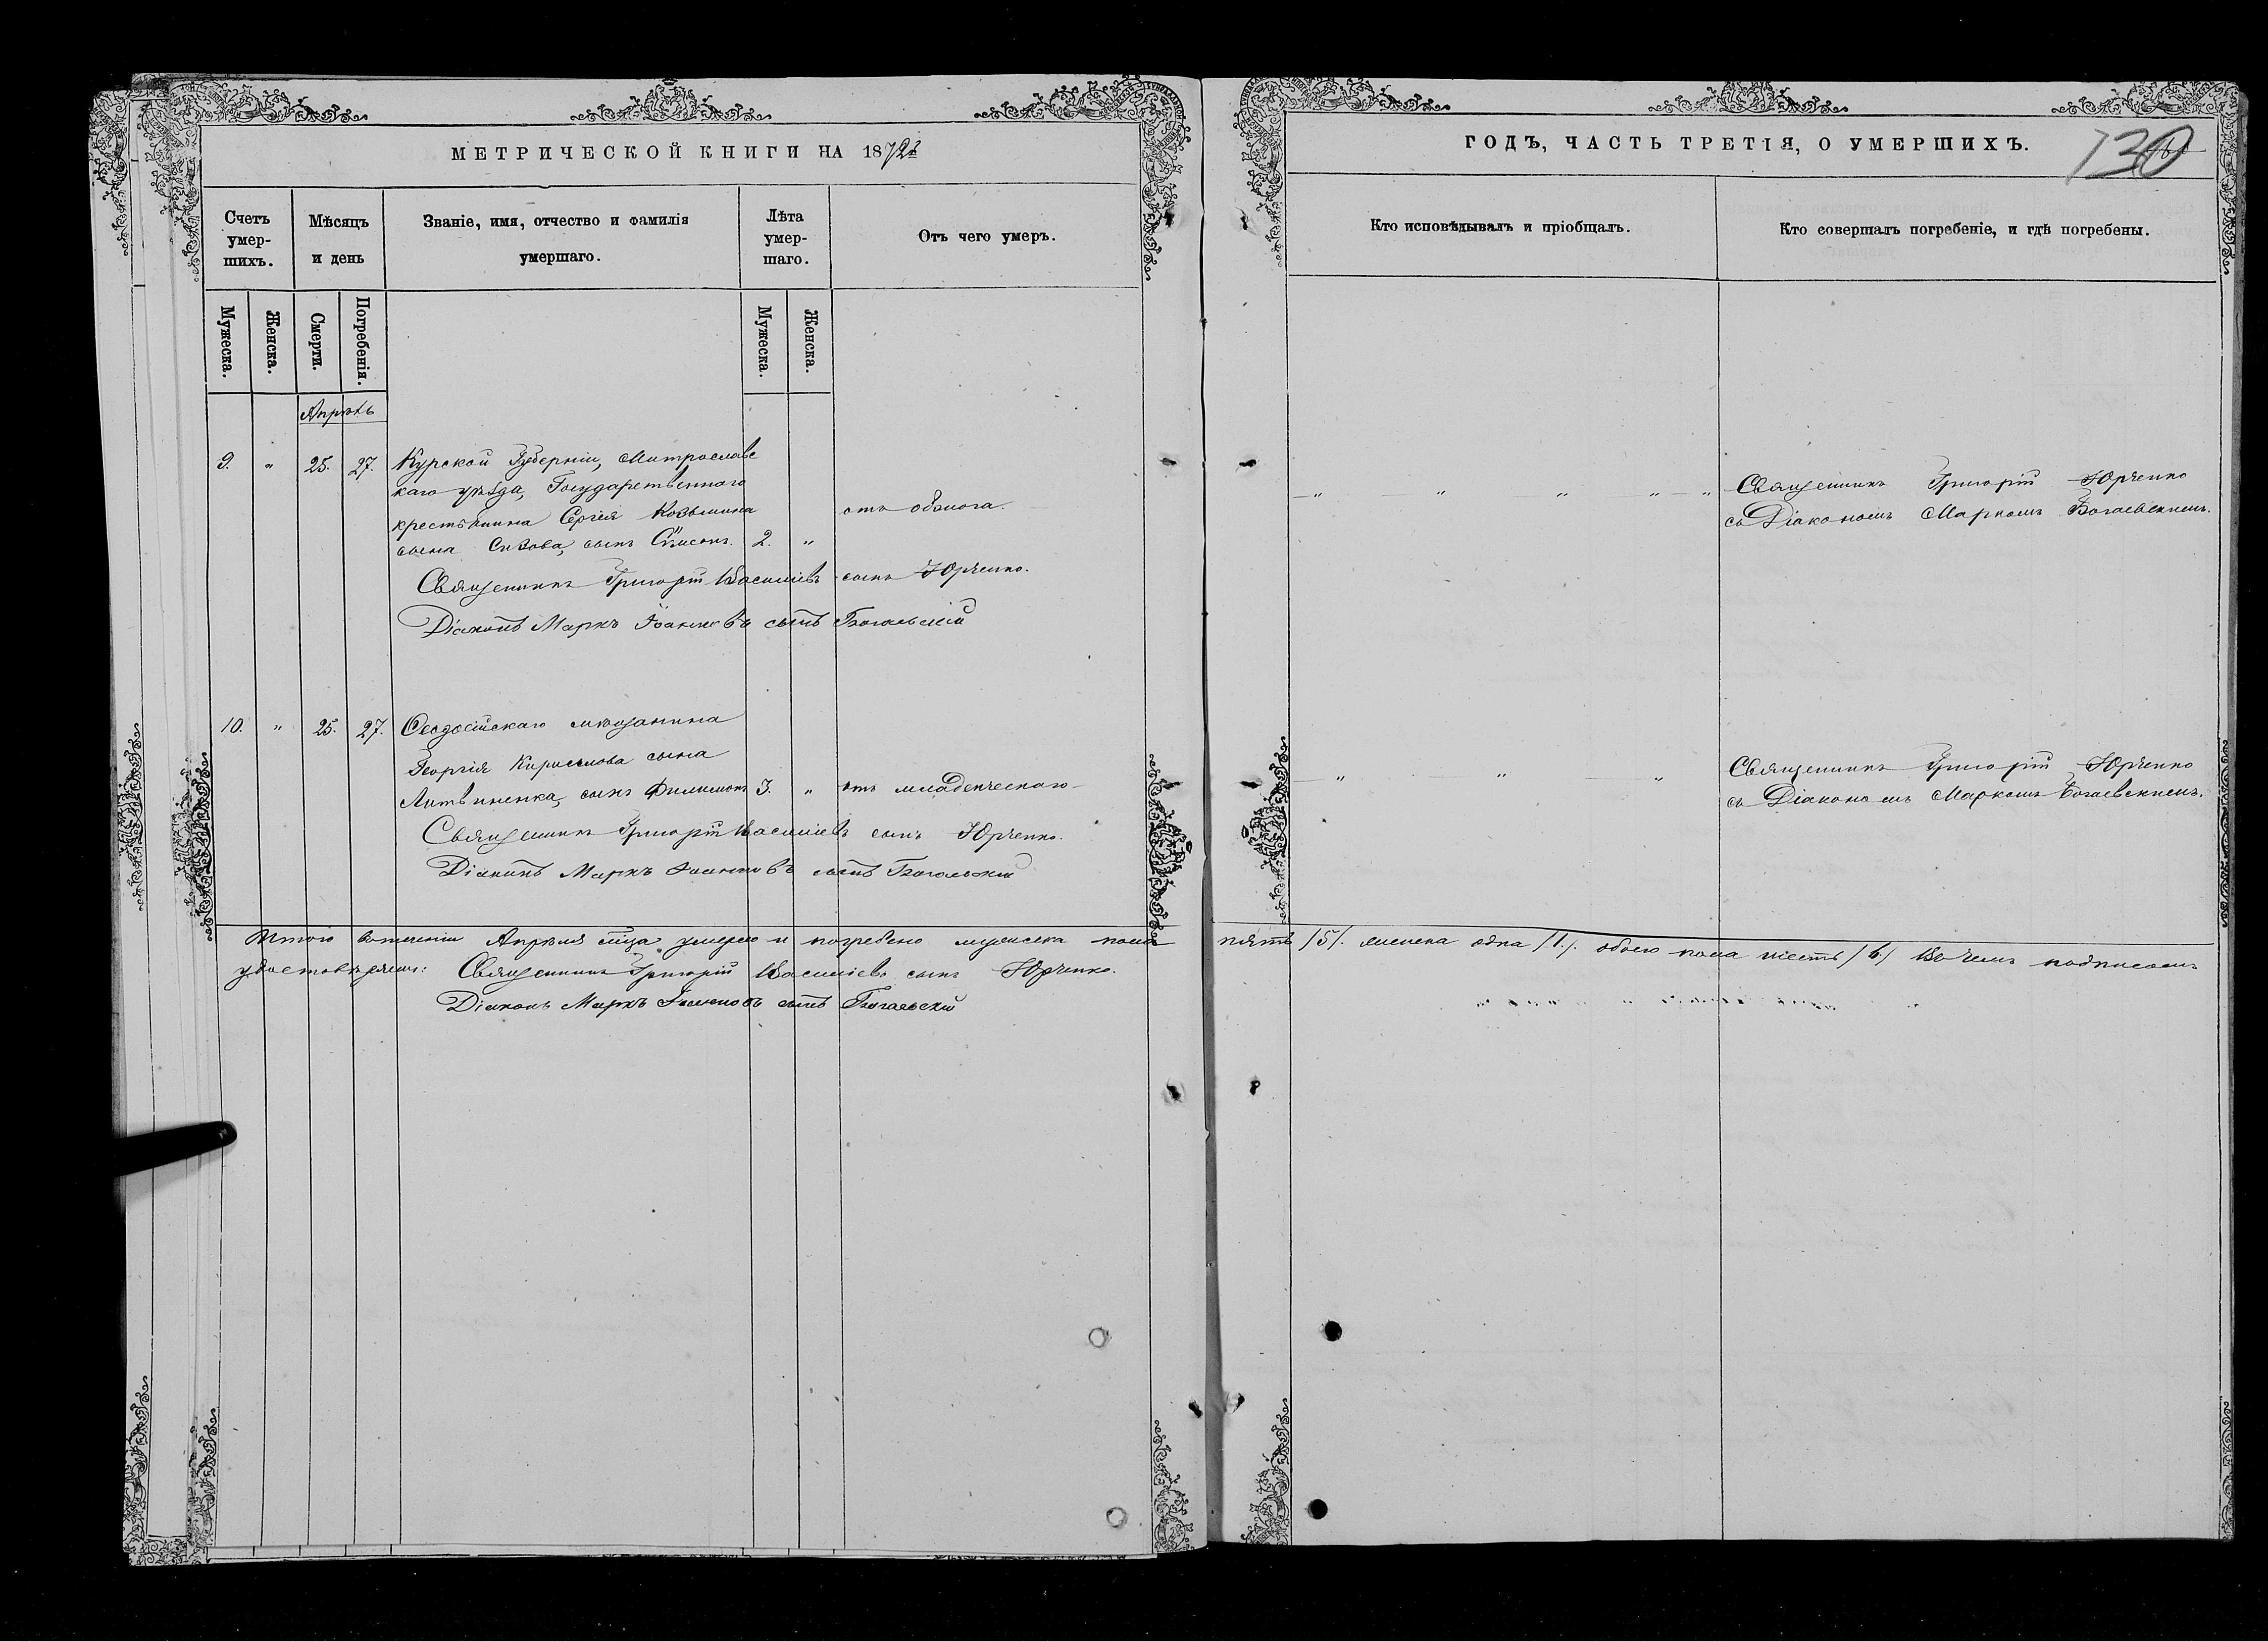 МЕТРИЧЕСКОЙ КНИГИ НА 1872й
Счетъ умер-шихъ.
Мѣсяцъ и день
Званіе, имя, отчество и фамилія умершаго.
Лѣта умер-шаго.
Отъ чего умеръ.
Мужеска.
Женска.
Смерти.
Погребенія.
Мужеска.
Женска.
Апрѣль
9. " 25. 27. Курской Губерніи, Митрославс
каго уѣзда, Государственнаго
крестьянина Сергѣя Козьмина отъ обжога.
сына Сизова, сынъ Сѵмеонъ. 2. "
Священникъ Григорій Василіевъ сынъ Юрченко.
Діаконъ Маркъ Іоанновъ сынъ Богаевскій
10. " 25. 27. Ѳеодосійскаго мѣщанина
Георгія Кириллова сына
Литвиненка, сынъ Филимонъ 3. " отъ младенческаго
Священникъ Григорій Василіевъ сынъ Юрченко.
Діаконъ Маркъ Іоанновъ сынъ Богаевскій
Итого въ теченіи Апрѣля м҃ца умерло и погребено мужеска пола
удостовѣряемъ: Священникъ Григорій Василіевъ сынъ Юрченко.
Діаконъ Маркъ Іоанновъ сынъ Богаевскій
ГОДЪ, ЧАСТЬ ТРЕТІЯ, О УМЕРШИХЪ.
130
Кто исповѣдывалъ и пріобщалъ.
Кто совершалъ погребеніе, и гдѣ погребены.
" " " " " Священникъ Григорій Юрченко
съ Діакономъ Маркомъ Богаевскимъ.
" " " Священникъ Григорій Юрченко
съ Діакономъ Маркомъ Богаевскимъ.
пять /5/. женска одна /1./. обоего пола шесть /6./ Въ чемъ подписомъ